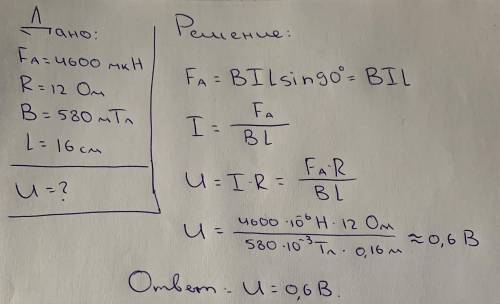 Дано:
Fₐ = 4600 мкН
R = 12 Ом
B = 580 мТл
l = 16 см
U = ?
Решение:
Fₐ = BILsin90° = BIL
I = Fₐ / BL
U = I·R = Fₐ·R / BL
U = 4600·10⁻⁶ Н · 12 Ом / 580·10⁻³ Тл · 0,16 м ≈ 0,6 В
Ответ: U = 0,6 В.